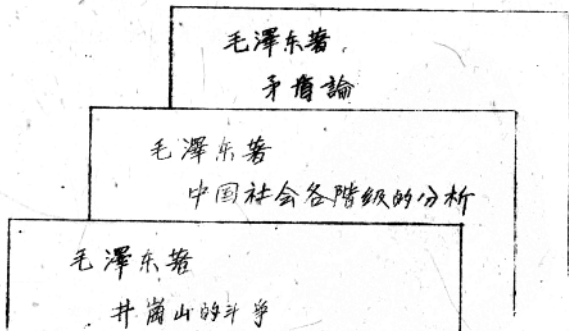 毛澤东著
矛盾論
毛澤东著
中国社会各階级的分析
毛澤东著
井崗山的斗争